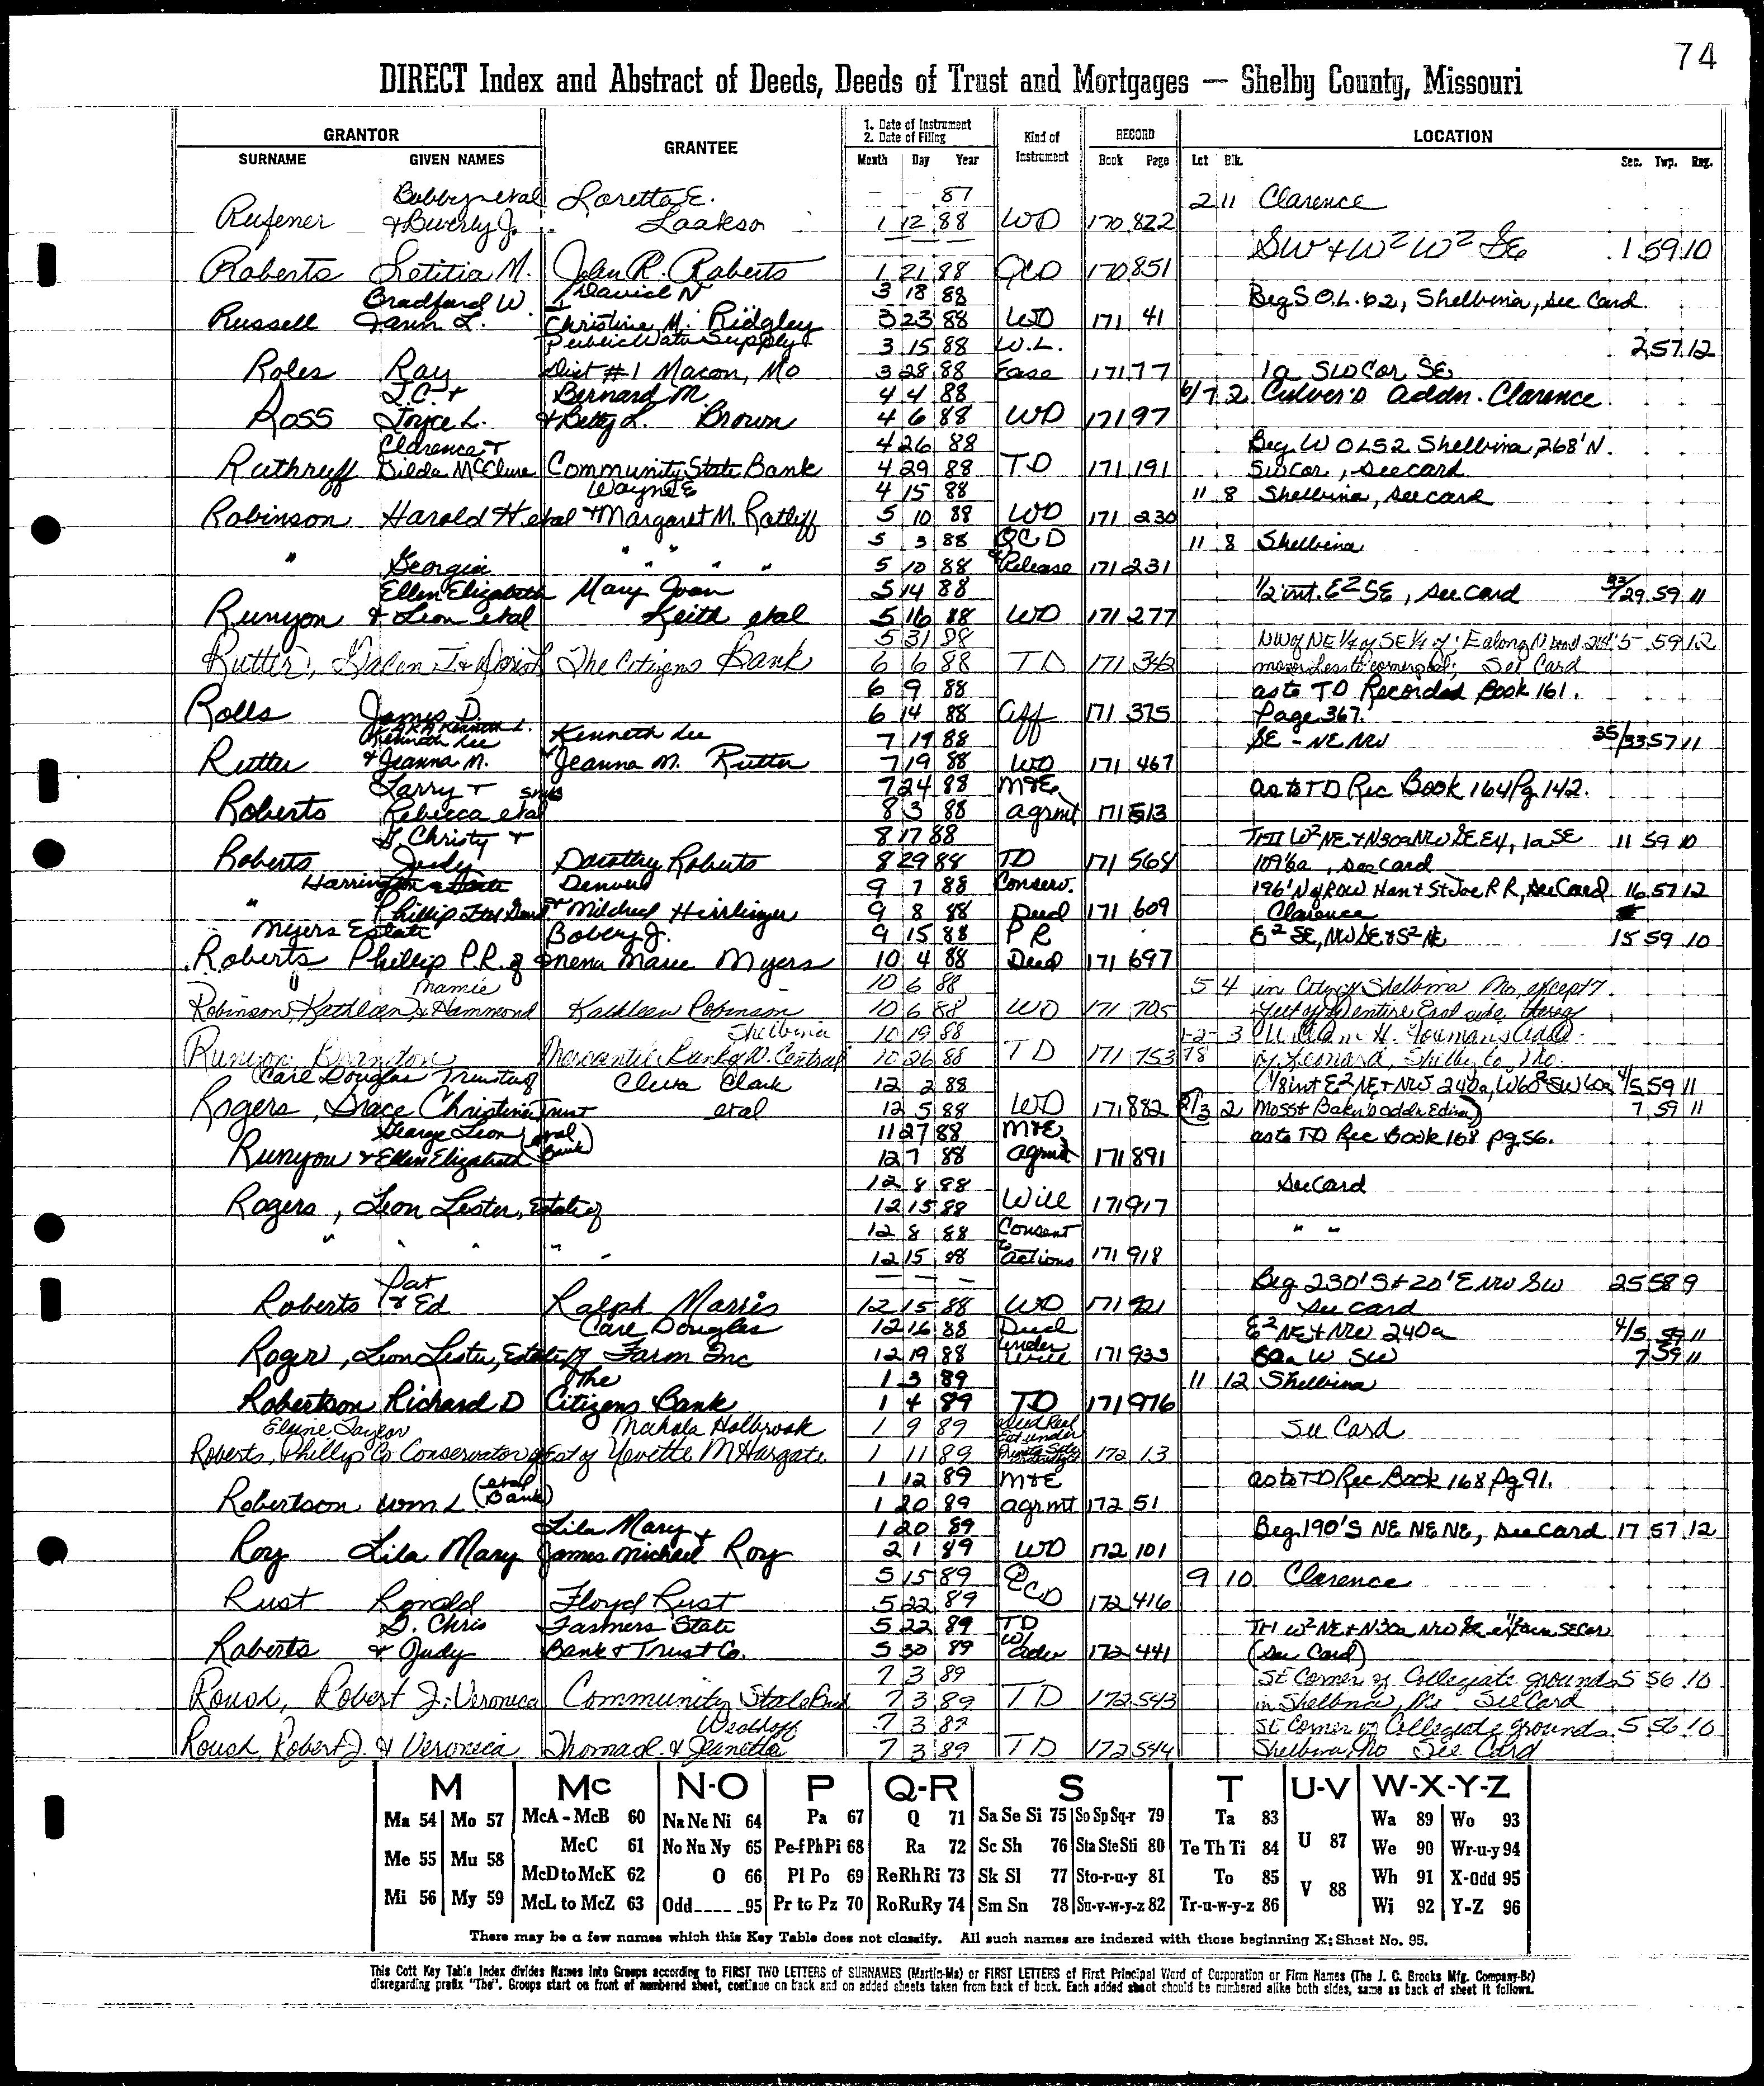 74
DIRECT Index and Abstract of Deeds, Deeds of Trust and Mortgages — Shelby County, Missouri
GRANTOR
SURNAME GIVEN NAMES
GRANTEE
1. Date of Instrument
2. Date of Filing
Month Day Year
Kind of
Instrument
RECORD
Book Page
LOCATION
Lot Blk. Sec. Twp. Rng.
Bobby etal Loretta E. 87 2 11 Clarence
Rufener & Beverly J. Laakso 1 12 88 WD 170 822
SW & W² W² SE 1 59 10
Roberts Letitia M. John R. Roberts 1 21 88 QCD 170 851
Bradford W. David N 3 18 88 Beg S.O.L. 62, Shelbina, see Card
Russell L. Christine M. Ridgley 3 23 88 WD 171 41
Public Water Supply 3 15 88 W.L. 2 57 12
Roles Ray Dist #1 Macon, Mo 3 28 88 Ease 171 77 1a SW Cor SE
J.C. & Bernard M. 4 4 88 6/7 2 Culver's Addn. Clarence
Ross Joyce L. & Betty L. Brown 4 6 88 WD 171 97
Clarence & 4 26 88 Beg W OL 52 Shelbina, 268' N.
Ruthruff Gilda McClure Community State Bank 4 29 88 TD 171 191 SW Cor., see card
Wayne E 4 15 88 11 8 Shelbina, see card
Robinson Harold H etal & Margaret M. Ratliff 5 10 88 WD 171 230
5 3 88 QCD 11 8 Shelbina
" Georgia " " " 5 10 88 & Release 171 231
Ellen Elizabeth Mary Joan 5 14 88 1/2 int. E² SE, see Card 59 11
Runyon & Leon etal Keith etal 5 16 88 WD 171 277
5 31 88 NW of NE 1/4 of SE 1/4 of 5 59 12
Rutter, Galen J. & Doris The Citizens Bank 6 6 88 TD 171 342 See Card
6 9 88 as to TD Recorded Book 161.
Rolls James D. 6 14 88 Aff 171 375 Page 367.
AKA Kenneth L.
Kenneth Lee Kenneth Lee 7 19 88 SE - NE NW 35/33 57 11
Rutter & Jeanna M. & Jeanna M. Rutter 7 19 88 WD 171 467
Larry & 7 24 88 M&E as to TD Rec Book 164 Pg 142.
Roberts Rebecca etal 8 3 88 agrmt 171 513
G Christy & 8 17 88 W² NE & N30a NW SE 11 59 10
Roberts Judy Dorothy Roberts 8 29 88 TD 171 568 see Card
Harrington Denver 9 7 88 Conserv. 196' N of ROW Han & St Joe RR, See Card 16 57 12
" Phillip & Mildred Heirlinger 9 8 88 Deed 171 609 Clarence
Myers Estate Bobby J. 9 15 88 PR E² SE, NW SE & S² NE 15 59 10
Roberts Phillip P.R. of Onena Marie Myers 10 4 88 Deed 171 697
Mamie 10 6 88 5 4 in City of Shelbina Mo, except 7
Robinson, Kathleen & Hammond Kathleen Robinson 10 6 88 WD 171 705 feet off entire East side thereof
Shelbina 10 19 88 1-2- 3 William H. Youmans Add.
Runyon Brandon Mercantile Bank of N. Central 10 26 88 TD 171 753 78 of Leonard, Shelby Co Mo.
Carl Douglas Trustee of Cleta Clark 12 2 88 (1/8 int E² NE & NW 240a, W60a SW 60a 4/5 59 11
Rogers, Grace Christine Trust etal 12 5 88 WD 171 882 2/3 2 Moss & Baker's addn Edina) 7 59 11
George Leon (etal 11 27 88 M&E as to TD Rec Book 168 pg 56.
Runyon & Ellen Elizabeth Bank) 12 7 88 agrmt 171 891
12 8 88 See Card
Rogers, Leon Lester, Estate of 12 15 88 Will 171 917
12 8 88 Consent " "
" " " " " 12 15 88 to actions 171 918
Pat Beg 230' S & 20' E NW SW 25 58 9
Roberts & Ed Ralph Marris 12 15 88 WD 171 921 see card
Carl Douglas 12 16 88 Deed E² NE & NW 240a 4/5 59 11
Roger, Leon Lester, Estate of Farm Inc 12 19 88 under Will 171 933 60a W SW 7 59 11
The 1 3 89 11 12 Shelbina
Robertson Richard D Citizens Bank 1 4 89 TD 171 976
Elaine Taylor Mahala Holbrook 1 9 89 See Card
Roberts, Phillip Co Conservator of Est of Yevette M Hargate 1 11 89 172 13
(etal 1 12 89 M&E as to TD Rec Book 168 Pg 91.
Robertson Wm. L. Bank) 1 20 89 agrmt 172 51
Lila Mary & 1 20 89 Beg 190' S NE NE NE, see Card 17 57 12
Roy Lila Mary James Michael Roy 2 1 89 WD 172 101
5 15 89 QCD 9 10 Clarence
Rust Ronald Floyd Rust 5 22 89 172 416
G. Chris Farmers State 5 22 89 TD W² NE & N30a NW SE SE Cor
Roberts & Judy Bank & Trust Co. 5 30 89 172 441 (See Card)
7 3 89 SE Corner of Collegiate grounds 5 56 10
Roush, Robert J. & Veronica Community State Bank 7 3 89 TD 172 543 in Shelbina, Mo See Card
Westhoff 7 3 89 SE Corner of Collegiate grounds 5 56 10
Roush, Robert J & Veronica Thomas R. & Jeanetta 7 3 89 TD 172 544 Shelbina, Mo See Card
M Mc N-O P Q-R S T U-V W-X-Y-Z
Ma 54 Mo 57 McA - McB 60 Na Ne Ni 64 Pa 67 Q 71 Sa Se Si 75 So Sp Sq-r 79 Ta 83 U 87 Wa 89 Wo 93
Me 55 Mu 58 McC 61 No Nu Ny 65 Pe-f Ph Pi 68 Ra 72 Sc Sh 76 Sta Ste Sti 80 Te Th Ti 84 We 90 Wr-u-y 94
McD to McK 62 O 66 Pl Po 69 Re Rh Ri 73 Sk Sl 77 Sto-r-u-y 81 To 85 V 88 Wh 91 X-Odd 95
Mi 56 My 59 McL to McZ 63 Odd 95 Pr to Pz 70 Ro Ru Ry 74 Sm Sn 78 Su-v-w-y-z 82 Tr-u-w-y-z 86 Wi 92 Y-Z 96
There may be a few names which this Key Table does not classify. All such names are indexed with those beginning X; Sheet No. 95.
This Cott Key Table Index divides Names into Groups according to FIRST TWO LETTERS of SURNAMES (Martin-Ma) or FIRST LETTERS of First Principal Word of Corporation or Firm Names (The J. C. Brooks Mfg. Company-Br)
disregarding prefix "The". Groups start on front of numbered sheet, continue on back and on added sheets taken from back of book. Each added sheet should be numbered alike both sides, same as back of sheet it follows.